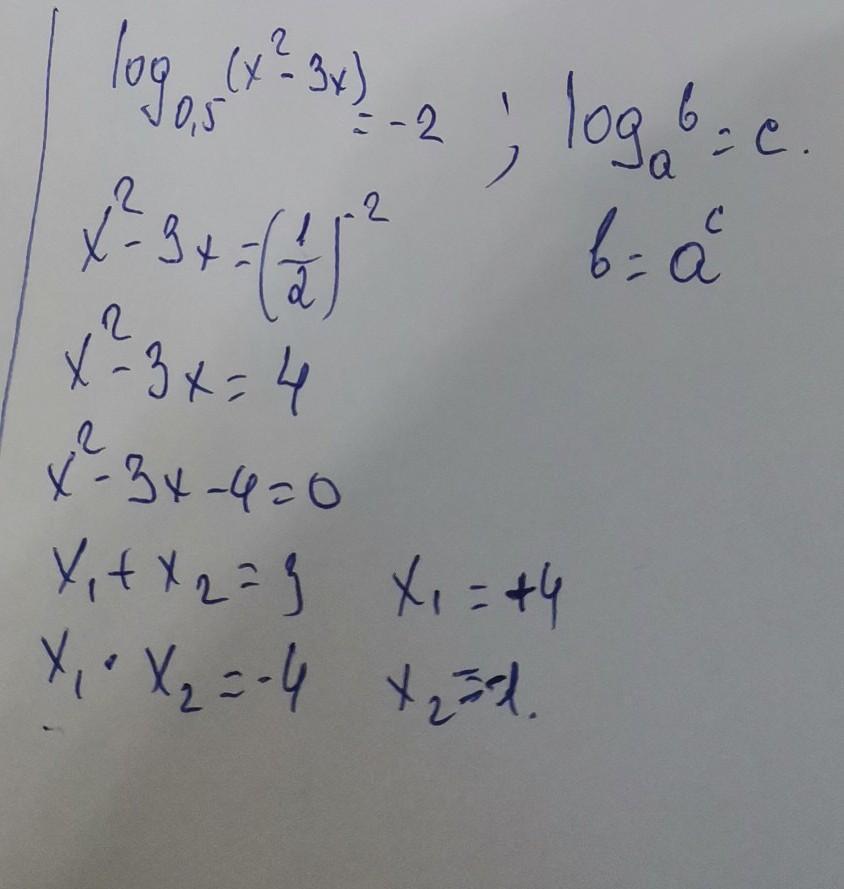 log₀,₅(x² - 3x) = -2 ; logₐ b = c.
x² - 3x = (1/2)⁻² b = aᶜ
x² - 3x = 4
x² - 3x - 4 = 0
x₁ + x₂ = 3 x₁ = +4
x₁ · x₂ = -4 x₂ = -1.